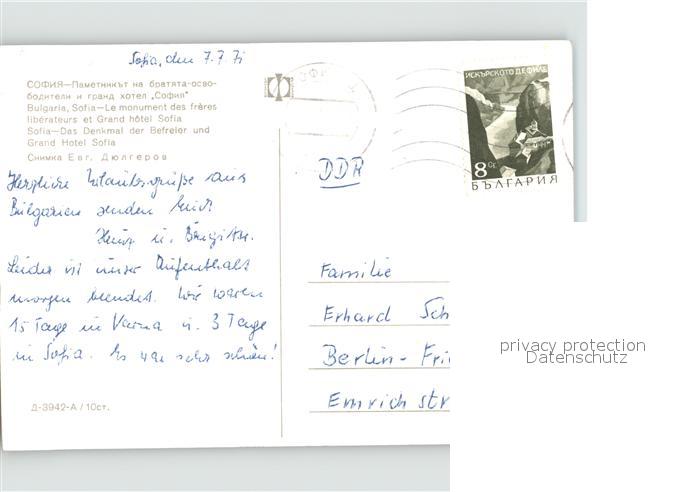 Sofia, den 7.7.71
СОФИЯ—Паметникът на братята-осво-
бодители и гранд хотел „София"
Bulgaria, Sofia—Le monument des frères
libérateurs et Grand hôtel Sofia
Sofia—Das Denkmal der Befreier und
Grand Hotel Sofia
Снимка Евг. Дюлгеров
Herzliche Urlaubsgrüße aus
Bulgarien senden Euch
Heinz u. Brigitte.
Leider ist unser Aufenthalt
morgen beendet. Wir waren
15 Tage in Varna u. 3 Tage
in Sofia. Es war sehr schön!
Д-3942-А / 10ст.
ИСКЪРСКОТО ДЕФИЛЕ
8 СТ.
БЪЛГАРИЯ
DDR
Familie
Erhard Sch
Berlin-Fri
Emrichstr
privacy protection
Datenschutz